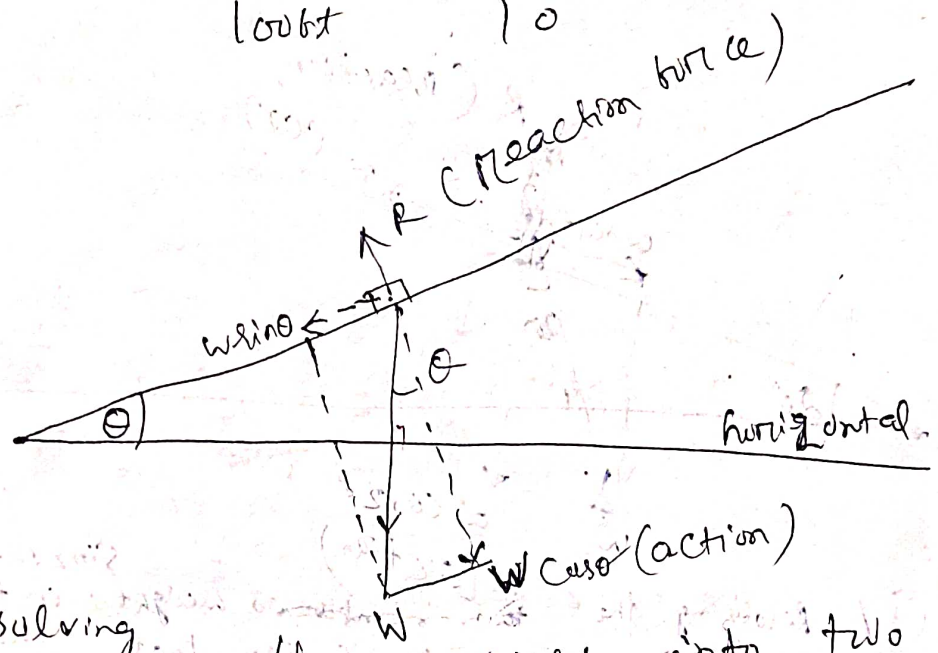 100ft 10
R (reaction force)
wsinθ
θ
θ
horizontal
W cosθ (action)
W
solving into two